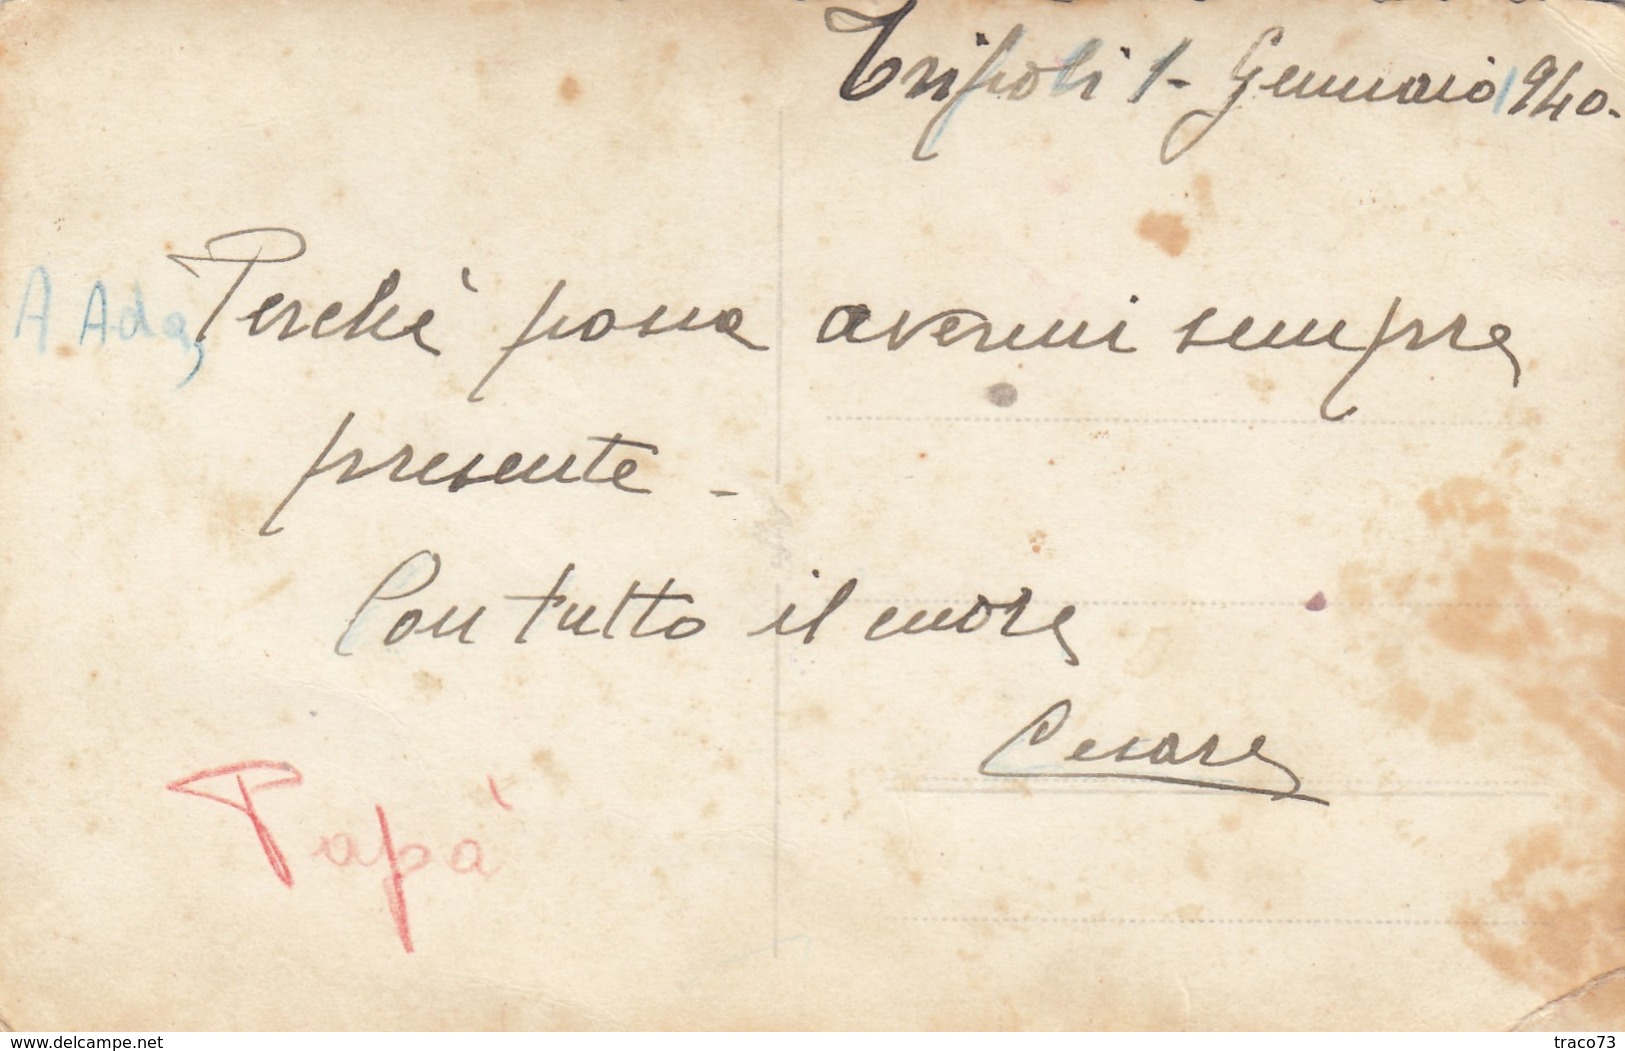 Tripoli 1- Gennaio 1940.
A Ada, Perchè possa avermi sempre
presente -
Con tutto il cuore
Cesare
Papà
www.delcampe.net
traco73